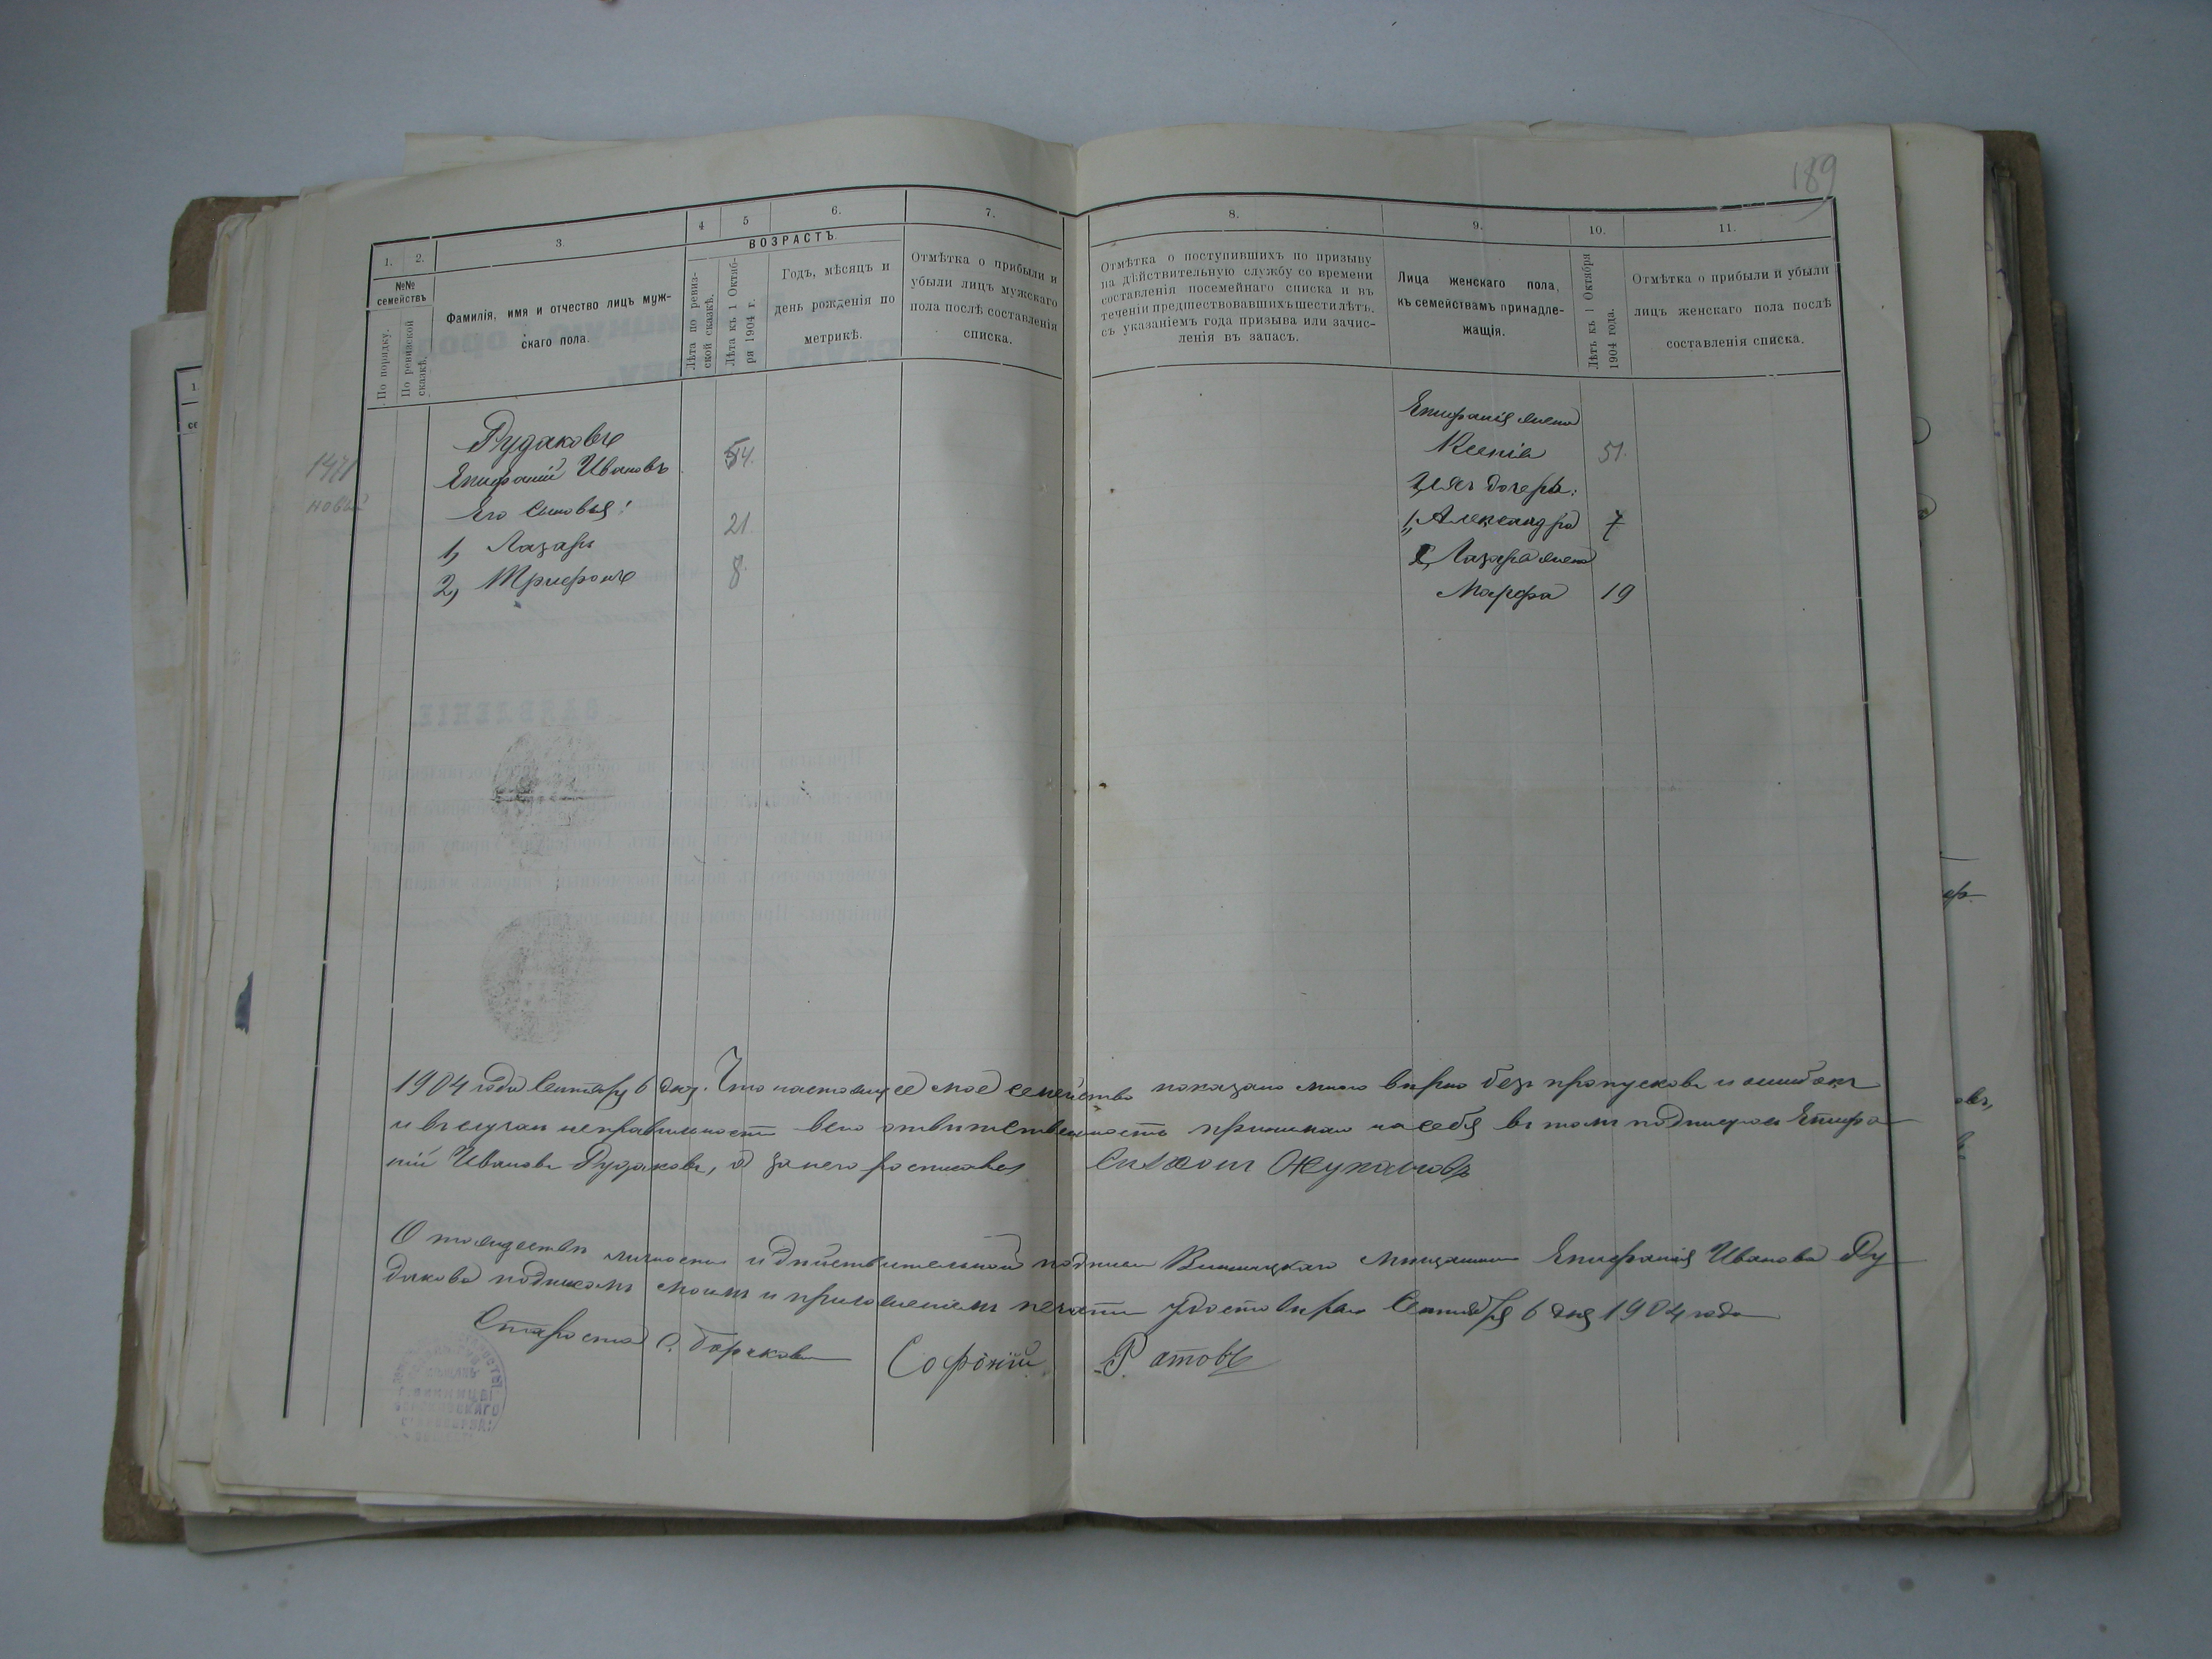 189
1. 2. 3. 4 5 6. 7. 8. 9. 10. 11.
№№ семействъ
По порядку.
По ревизской сказкѣ.
Фамилія, имя и отчество лицъ муж-
скаго пола.
ВОЗРАСТЪ
Лѣта по ревиз-
ской сказкѣ.
Лѣта къ 1 Октяб-
ря 1904 г.
Годъ, мѣсяцъ и
день рожденія по
метрикѣ.
Отмѣтка о прибыли и
убыли лицъ мужскаго
пола послѣ составленія
списка.
Отмѣтка о поступившихъ по призыву
на дѣйствительную службу со времени
составленія посемейнаго списка и въ
теченіи предшествовавшихъ шести лѣтъ,
съ указаніемъ года призыва или зачис-
ленія въ запасъ.
Лица женскаго пола,
къ семействамъ принадле-
жащія.
Лѣтъ къ 1 Октября
1904 года.
Отмѣтка о прибыли и убыли
лицъ женскаго пола послѣ
составленія списка.
1471
новый
Рудаковъ
Епифаній Ивановъ 54.
Его Сыновья:
1, Лазарь 21
2, Трифонъ 8
Епифанія жена
Ксенія 51.
Ихъ дочерь:
1, Александра 7
2, Лазаря жена
Марфа 19
1904 года Сентября 6 дня. Что настоящее мое семейство показано мною вѣрно безъ пропусковъ и ошибокъ
и въ случаи неправильности всю отвѣтственность принимаю на себя въ томъ подписуюсь Епифа-
ній Ивановъ Рудаковъ, а за него росписався
О тождествѣ личности и дѣйствительной подписи Винницкаго мѣщанина Епифанія Иванова Ру-
дакова подписомъ моимъ и приложеніемъ печати удостовѣраю Сентября 6 дня 1904 года
Староста с. Борсково Софоній Ратовъ